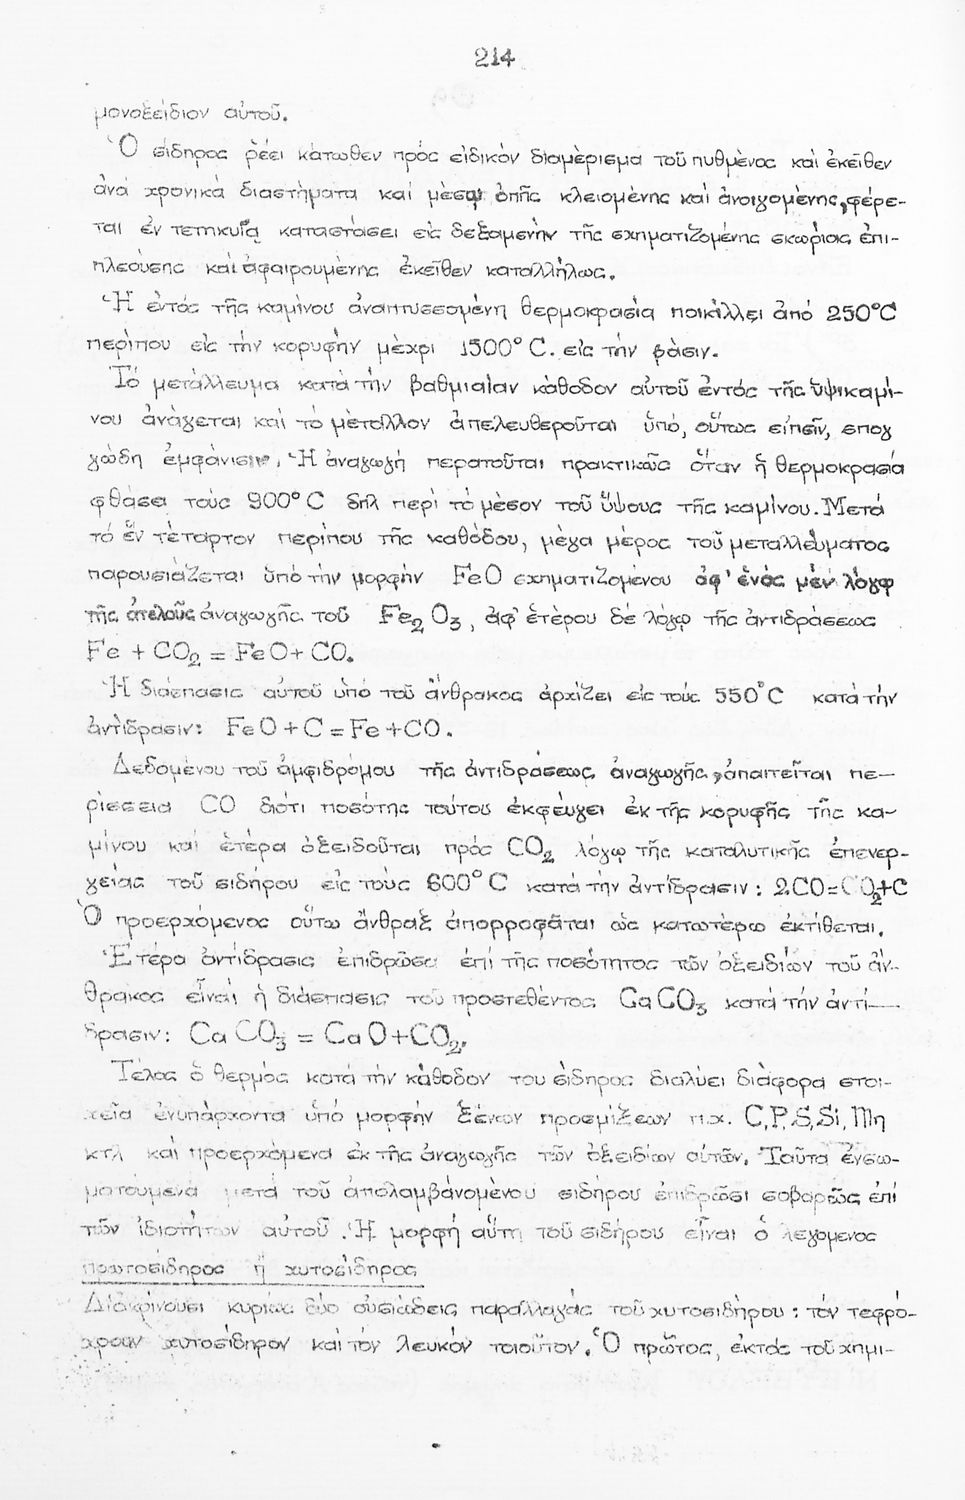 214
μονοξείδιον αὐτοῦ.
Ὁ σίδηρος ρέει κάτωθεν πρός εἰδικόν διαμέρισμα τοῦ πυθμένος καί ἐκεῖθεν
ἀνά χρονικά διαστήματα καί μέσῳ ὀπῆς κλειομένης καί ἀνοιγομένης, φέρε-
ται ἐν τετηκυίᾳ καταστάσει εἰς δεξαμενήν τῆς σχηματιζομένης σκωρίας ἐπι-
πλεούσης καί ἀφαιρουμένης ἐκεῖθεν καταλλήλως.
Ἡ ἐντός τῆς καμίνου ἀναπτυσσομένη θερμοκρασία ποικίλλει ἀπό 250°C
περίπου εἰς τήν κορυφήν μέχρι 1500°C. εἰς τήν βάσιν.
Τό μετάλλευμα κατά τήν βαθμιαίαν κάθοδον αὐτοῦ ἐντός τῆς ὑψικαμί-
νου ἀνάγεται καί τό μέταλλον ἀπελευθεροῦται ὑπό, οὕτως εἰπεῖν, σπογ
γώδη ἐμφάνισιν. Ἡ ἀναγωγή περατοῦται πρακτικῶς ὅταν ἡ θερμοκρασία
φθάσει τούς 900°C δηλ περί τό μέσον τοῦ ὕψους τῆς καμίνου. Μετά
τό ἕν τέταρτον περίπου τῆς καθόδου, μέγα μέρος τοῦ μεταλλεύματος
παρουσιάζεται ὑπό τήν μορφήν FeO σχηματιζομένου ἀφ' ἑνός μέν λόγῳ
τῆς ἀτελοῦς ἀναγωγῆς τοῦ Fe₂O₃, ἀφ' ἑτέρου δέ λόγῳ τῆς ἀντιδράσεως
Fe + CO₂ = FeO + CO.
Ἡ διάσπασις αὐτοῦ ὑπό τοῦ ἄνθρακος ἀρχίζει εἰς τούς 550°C κατά τήν
ἀντίδρασιν: FeO + C = Fe + CO.
Δεδομένου τοῦ ἀμφιδρόμου τῆς ἀντιδράσεως ἀναγωγῆς, ἀπαιτεῖται πε-
ρίσσεια CO διότι ποσότης τούτου ἐκφεύγει ἐκ τῆς κορυφῆς τῆς κα-
μίνου καί ἑτέρα ὀξειδοῦται πρός CO₂ λόγῳ τῆς καταλυτικῆς ἐπενερ-
γείας τοῦ σιδήρου εἰς τούς 600°C κατά τήν ἀντίδρασιν: 2CO=CO₂+C
Ὁ προερχόμενος οὕτω ἄνθραξ ἀπορροφᾶται ὡς κατωτέρω ἐκτίθεται.
Ἑτέρα ἀντίδρασις ἐπιδρῶσα ἐπί τῆς ποσότητος τῶν ὀξειδίων τοῦ ἄν-
θρακος εἶναι ἡ διάσπασις τοῦ προστεθέντος CaCO₃ κατά τήν ἀντί-
δρασιν: CaCO₃ = CaO+CO₂.
Τέλος ὁ θερμός κατά τήν κάθοδον του σίδηρος διαλύει διάφορα στοι-
χεῖα ἐνυπάρχοντα ὑπό μορφήν ξένων προσμίξεων π.χ. C,P,S,Si,Mn
κτλ καί προερχόμενα ἐκ τῆς ἀναγωγῆς τῶν ὀξειδίων αὐτῶν. Ταῦτα ἐνσω-
ματούμενα μετά τοῦ ἀπολαμβανομένου σιδήρου ἐπιδρῶσι σοβαρῶς ἐπί
τῶν ἰδιοτήτων αὐτοῦ. Ἡ μορφή αὕτη τοῦ σιδήρου εἶναι ὁ λεγόμενος
πρωτοσίδηρος ἤ χυτοσίδηρος
Διακρίνουσι κυρίως δύο οὐσιώδεις παραλλαγάς τοῦ χυτοσιδήρου: τόν τεφρό-
χρουν χυτοσίδηρον καί τόν λευκόν τοιοῦτον. Ὁ πρῶτος, ἐκτός τοῦ χημι-